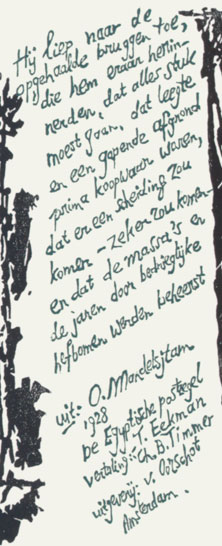 Hij liep naar de
opgehaalde bruggen toe,
die hem eraan herin-
nerden, dat alles stuk
moest gaan, dat leegte
en een gapende afgrond
prima koopwaar waren,
dat er een scheiding zou
komen – zeker zou komen
en dat de massa's en
de jaren door bedrieglijke
hefbomen werden beheerst
uit: O. Mandelsjtam
1928
De Egyptische postzegel
vertaling: T. Eekman
Ch. B. Timmer
uitgeverij: v. Oorschot
Amsterdam.